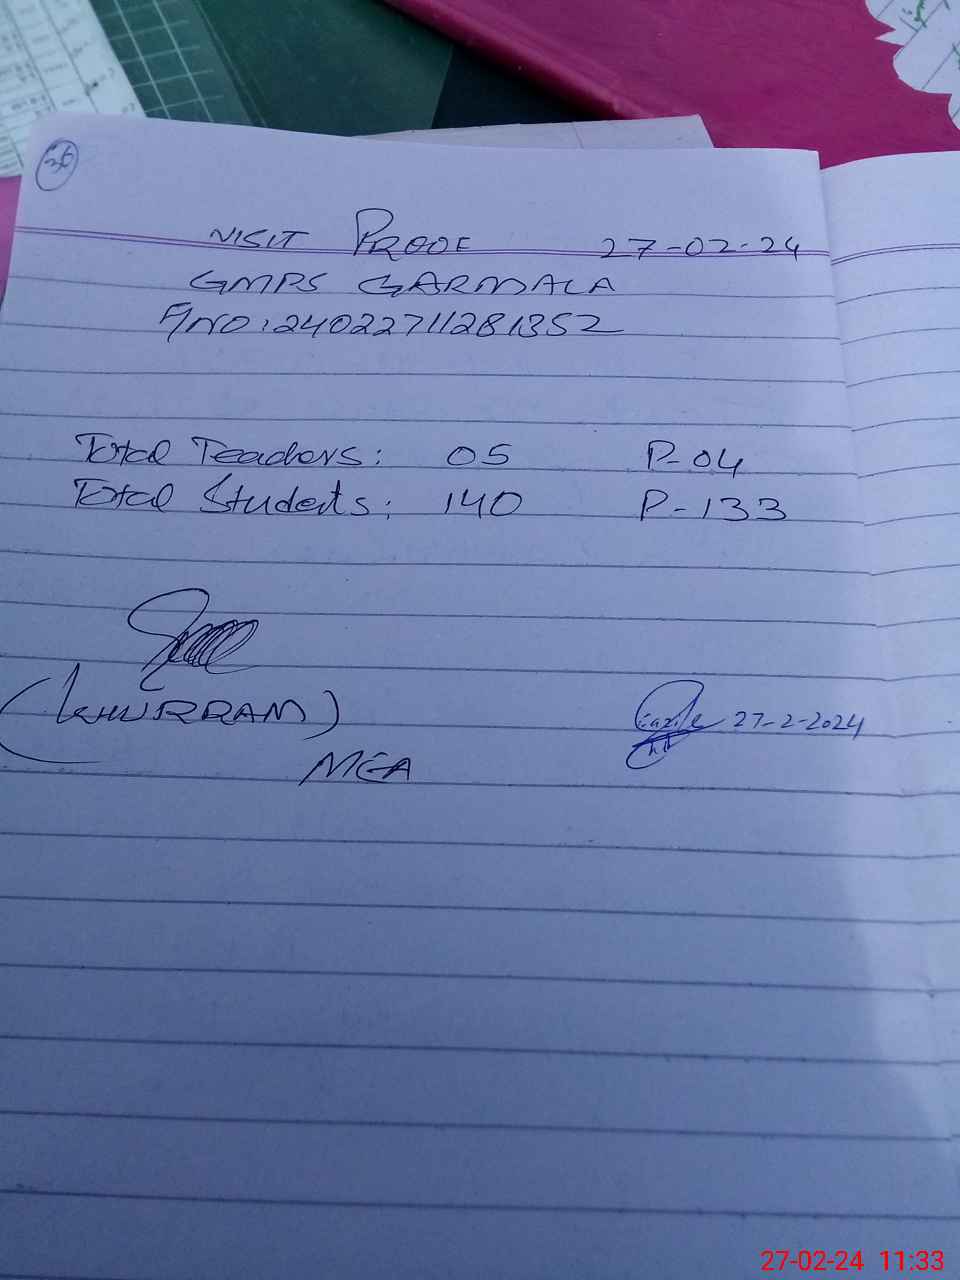 36
VISIT PROOF 27-02-24
GMPS GARMALA
F/NO:24022711281352
Total Teachers: 05 P-04
Total Students: 140 P-133
(KHURRAM)
MEA
27-2-2024
27-02-24 11:33